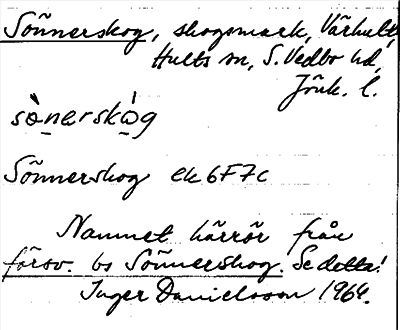 Sönnerskog, skogsmark, Värhult,
Hults sn, S. Vedbo hd,
Jönk. l.
sònerskòg
Sönnerskog ek 6F7c
Namnet härrör från
försv. bs Sönnerskog. Se detta!
Inger Danielsson 1964.